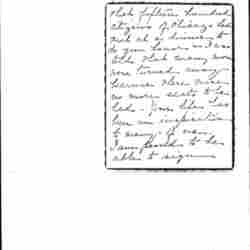 that fifteen hundred
citizens of Chicago
met at a dinner to
do you honor & I was
told that many more
were turned away
because there were
no more seats to be
had. Your life has
been an inspiration
to many of us
I am proud to be
able to sign